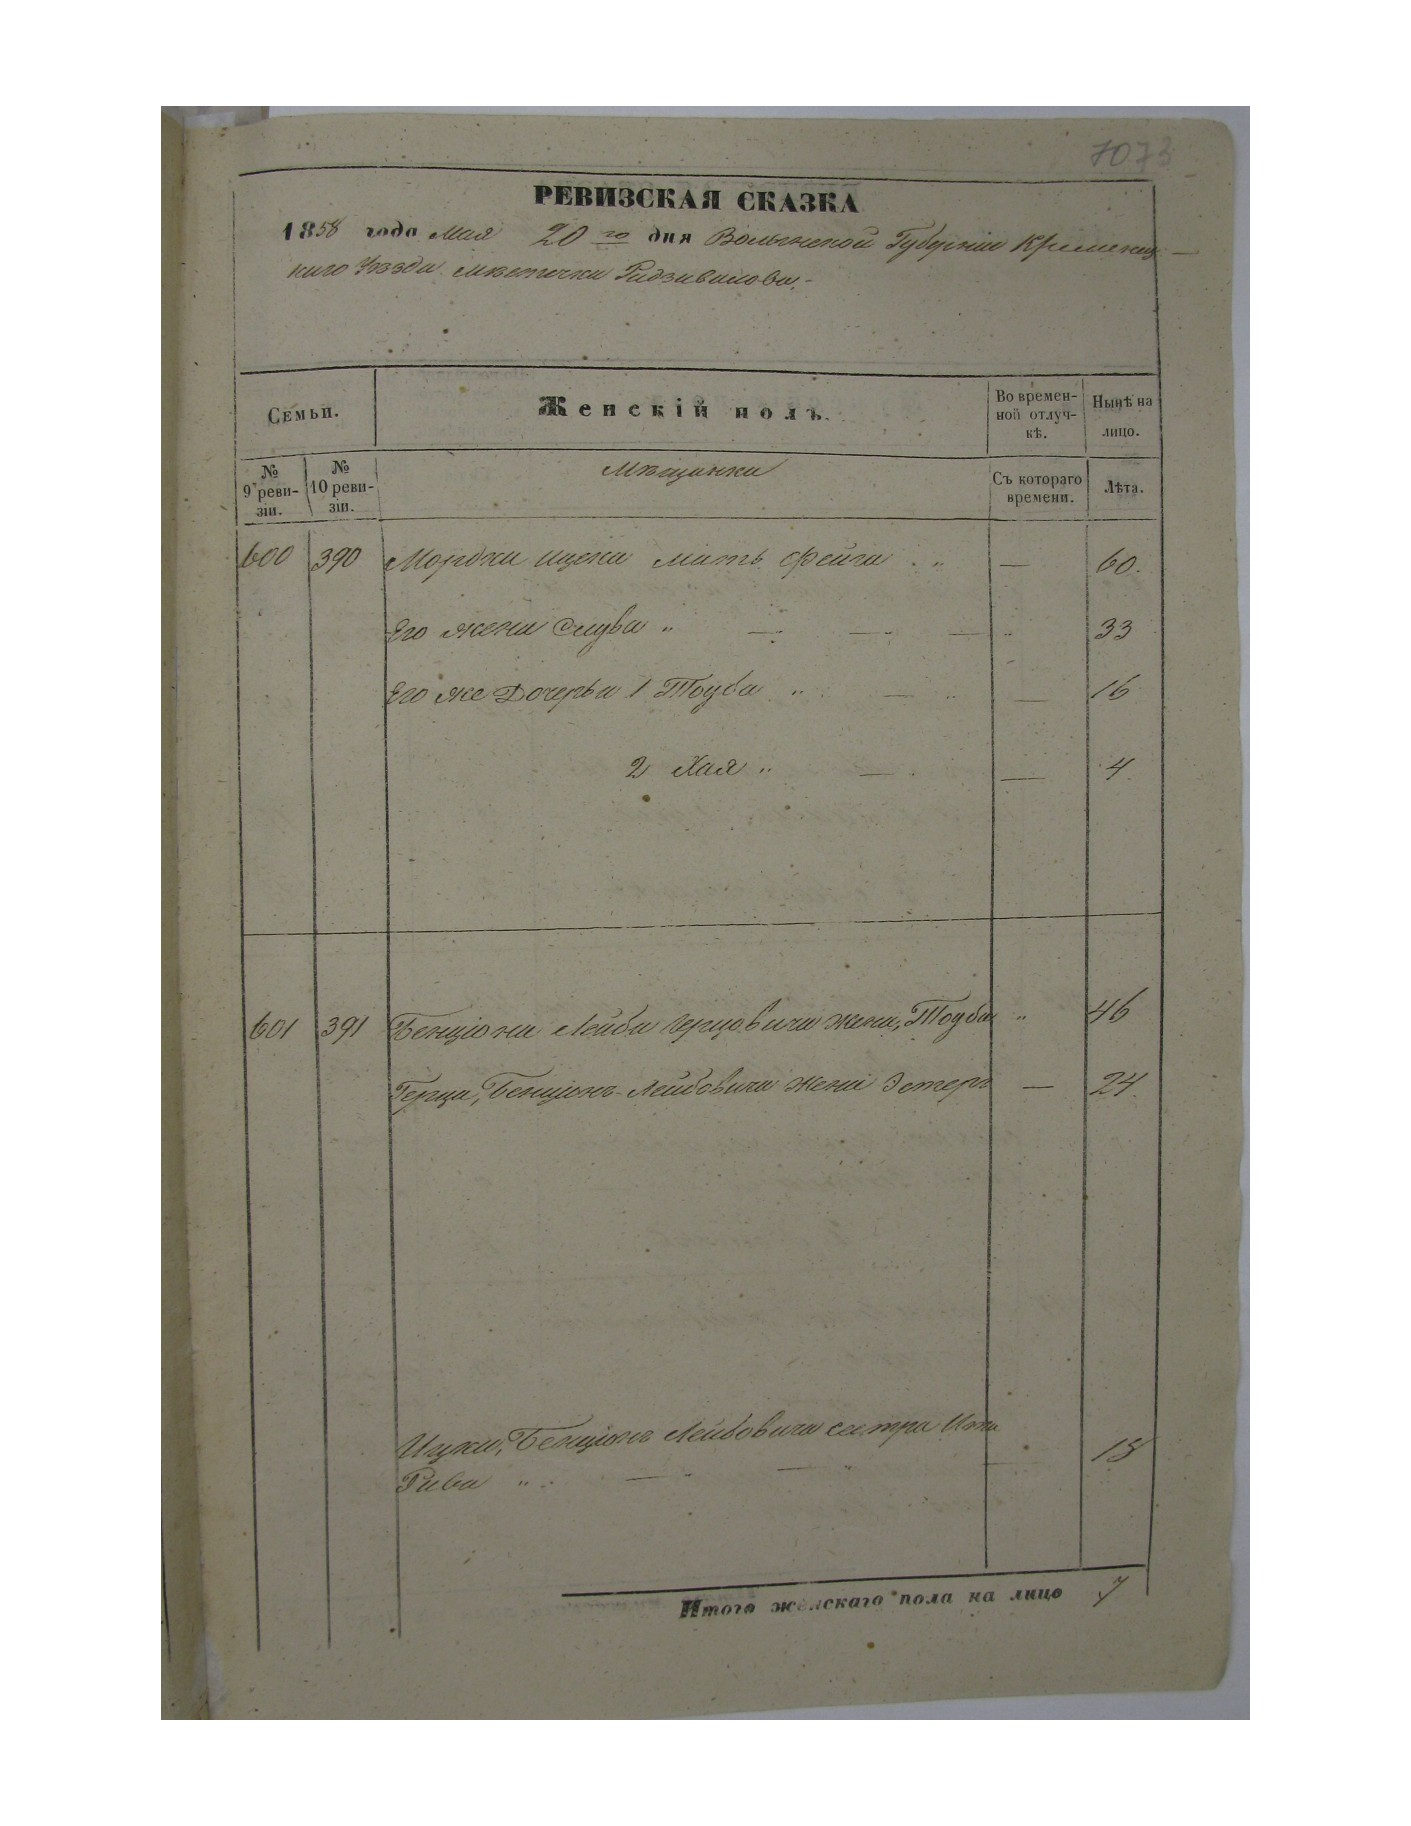 1073
РЕВИЗСКАЯ СКАЗКА
1858 года Мая 20го дня Волынской Губерніи Кременец-
каго Уѣзда мѣстечка Радзивилова.
Семьи.
Женскій полъ.
Во времен-
ной отлуч-
кѣ.
Нынѣ на
лицо.
№
9 реви-
зіи.
№
10 реви-
зіи.
Мѣщанки
Съ котораго
времени.
Лѣта.
600 390 Мордка Ицека мать Фейга " — 60.
Его жена Слува " — — — " 33
Его же Дочерьи 1 Тоуба " — " — 16
2 Хая " — — 4.
601 391 Бенціона Лейба Герцовича жена, Тоуба " 46
Герца, Бенціонъ-Лейбовича жена Эстеръ — 24.
Ицка, Бенціонъ Лейбовича сестра Ита
Рива " — " — " — 18
Итого женскаго пола на лицо 7